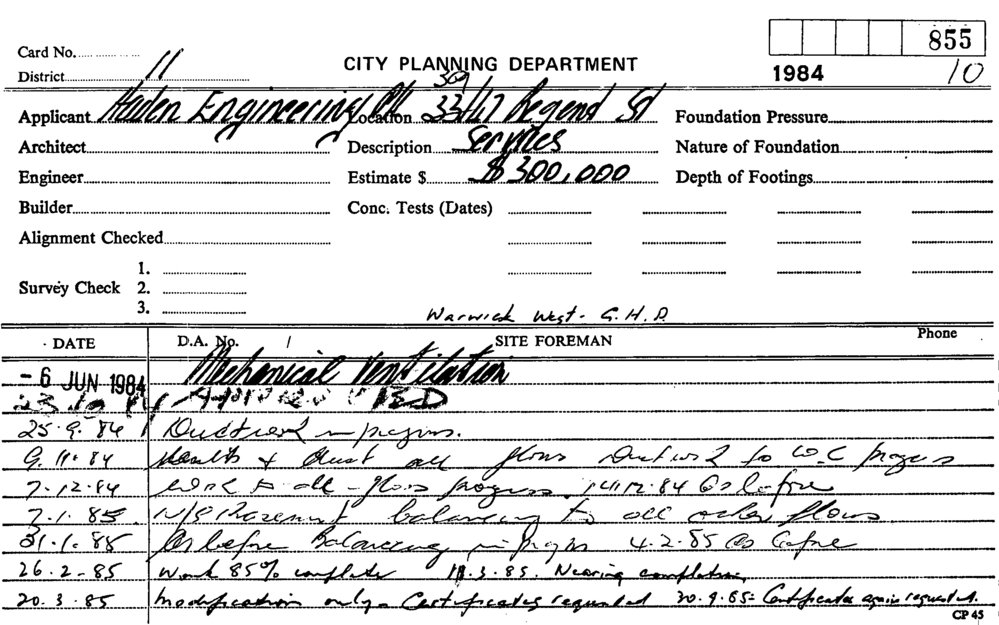 855
Card No.
CITY PLANNING DEPARTMENT
1984 10
District 11
309
Applicant Haden Engineering P/L Location 33/47 Regent St Foundation Pressure
Architect Description Services Nature of Foundation
Engineer Estimate $ $300,000 Depth of Footings
Builder Conc. Tests (Dates)
Alignment Checked
1.
Survey Check 2.
3.
Warwick West - G.H.D.
DATE D.A. No. / SITE FOREMAN Phone
- 6 JUN 1984 Mechanical Ventilation
25.9.84 Ductwork in progress.
9.11.84 & duct all floors Ductwork to W.C progress
7.12.84 Work to all floors progress. 14.12.84 As before
7.1.85 N/S Basement balancing to all other floors
31.1.85 As before Balancing in progress 4.2.85 As before
26.2-85 Work 85% complete 11.3.85. Nearing completion
20.3.85 Modification only - Certificates requested 30.9.85 - Certificates again requested.
CP 45